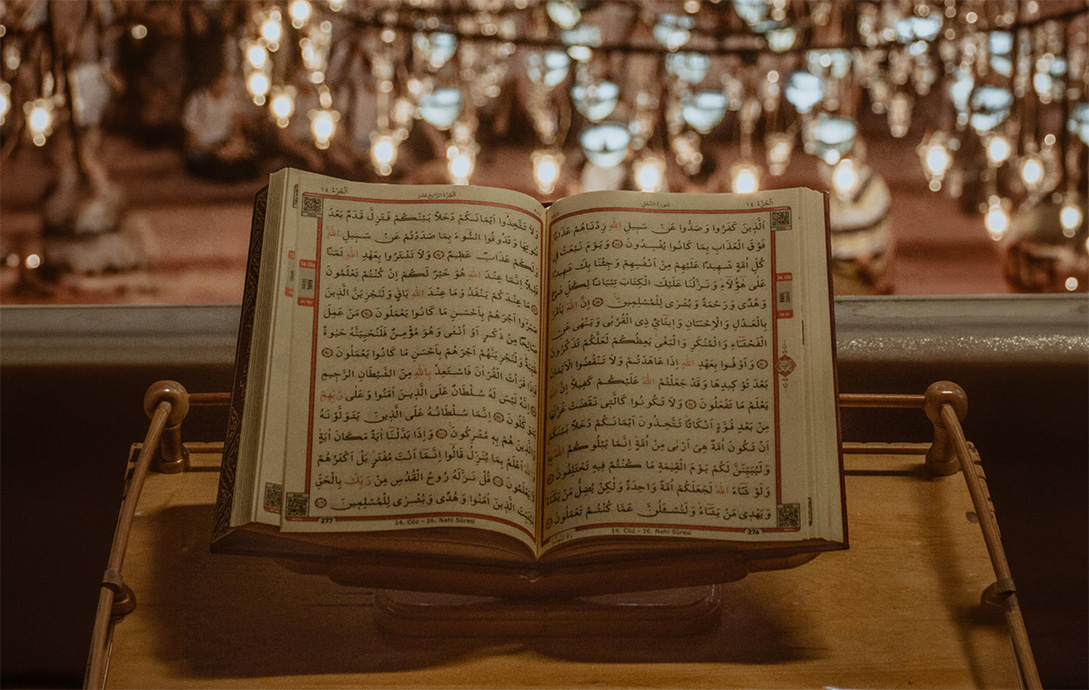 اَلْجُزْءُ ١٤
سُورَةُ النَّحْلِ
اَلَّذِينَ كَفَرُوا وَصَدُّوا عَنْ سَبِيلِ اللهِ زِدْنَاهُمْ عَذَابًا
فَوْقَ الْعَذَابِ بِمَا كَانُوا يُفْسِدُونَ وَيَوْمَ نَبْعَثُ فِى
كُلِّ اُمَّةٍ شَهِيدًا عَلَيْهِمْ مِنْ اَنْفُسِهِمْ وَجِئْنَا بِكَ شَهِيدًا
عَلٰى هٰٓؤُلَٓاءِ وَنَزَّلْنَا عَلَيْكَ الْكِتَابَ تِبْيَانًا لِكُلِّ شَىْءٍ
وَهُدًى وَرَحْمَةً وَبُشْرٰى لِلْمُسْلِمِينَ اِنَّ اللهَ يَأْمُرُ
بِالْعَدْلِ وَالْاِحْسَانِ وَاِيتَٓائِ ذِى الْقُرْبٰى وَيَنْهٰى عَنِ
الْفَحْشَٓاءِ وَالْمُنْكَرِ وَالْبَغْىِ يَعِظُكُمْ لَعَلَّكُمْ تَذَكَّرُونَ
وَاَوْفُوا بِعَهْدِ اللهِ اِذَا عَاهَدْتُمْ وَلَا تَنْقُضُوا الْاَيْمَانَ
بَعْدَ تَوْكِيدِهَا وَقَدْ جَعَلْتُمُ اللهَ عَلَيْكُمْ كَفِيلًا اِنَّ اللهَ
يَعْلَمُ مَا تَفْعَلُونَ وَلَا تَكُونُوا كَالَّتِى نَقَضَتْ غَزْلَهَا
مِنْ بَعْدِ قُوَّةٍ اَنْكَاثًا تَتَّخِذُونَ اَيْمَانَكُمْ دَخَلًا بَيْنَكُمْ
اَنْ تَكُونَ اُمَّةٌ هِىَ اَرْبٰى مِنْ اُمَّةٍ اِنَّمَا يَبْلُوكُمُ اللهُ
وَلَيُبَيِّنَنَّ لَكُمْ يَوْمَ الْقِيٰمَةِ مَا كُنْتُمْ فِيهِ تَخْتَلِفُونَ
وَلَوْ شَٓاءَ اللهُ لَجَعَلَكُمْ اُمَّةً وَاحِدَةً وَلٰكِنْ يُضِلُّ مَنْ يَشَٓاءُ
وَيَهْدِى مَنْ يَشَٓاءُ وَلَتُسْـَٔلُنَّ عَمَّا كُنْتُمْ تَعْمَلُونَ
14. Cüz - 16. Nahl Sûresi
276
اَلْجُزْءُ ١٤
اَلْجُزْءُ الرَّابِعَ عَشَرَ
وَلَا تَتَّخِذُٓوا اَيْمَانَكُمْ دَخَلًا بَيْنَكُمْ فَتَزِلَّ قَدَمٌ بَعْدَ
ثُبُوتِهَا وَتَذُوقُوا السُّٓوءَ بِمَا صَدَدْتُمْ عَنْ سَبِيلِ اللهِ
وَلَكُمْ عَذَابٌ عَظِيمٌ وَلَا تَشْتَرُوا بِعَهْدِ اللهِ ثَمَنًا
قَلِيلًا اِنَّمَا عِنْدَ اللهِ هُوَ خَيْرٌ لَكُمْ اِنْ كُنْتُمْ تَعْلَمُونَ
مَا عِنْدَكُمْ يَنْفَدُ وَمَا عِنْدَ اللهِ بَاقٍ وَلَنَجْزِيَنَّ الَّذِينَ
صَبَرُٓوا اَجْرَهُمْ بِاَحْسَنِ مَا كَانُوا يَعْمَلُونَ مَنْ عَمِلَ
صَالِحًا مِنْ ذَكَرٍ اَوْ اُنْثٰى وَهُوَ مُؤْمِنٌ فَلَنُحْيِيَنَّهُ حَيٰوةً
طَيِّبَةً وَلَنَجْزِيَنَّهُمْ اَجْرَهُمْ بِاَحْسَنِ مَا كَانُوا يَعْمَلُونَ
فَاِذَا قَرَأْتَ الْقُرْاٰنَ فَاسْتَعِذْ بِاللهِ مِنَ الشَّيْطَانِ الرَّجِيمِ
اِنَّهُ لَيْسَ لَهُ سُلْطَانٌ عَلَى الَّذِينَ اٰمَنُوا وَعَلٰى رَبِّهِمْ
يَتَوَكَّلُونَ اِنَّمَا سُلْطَانُهُ عَلَى الَّذِينَ يَتَوَلَّوْنَهُ
وَالَّذِينَ هُمْ بِهِ مُشْرِكُونَ وَاِذَا بَدَّلْنَٓا اٰيَةً مَكَانَ اٰيَةٍ
وَاللهُ اَعْلَمُ بِمَا يُنَزِّلُ قَالُٓوا اِنَّمَٓا اَنْتَ مُفْتَرٍ بَلْ اَكْثَرُهُمْ
لَا يَعْلَمُونَ قُلْ نَزَّلَهُ رُوحُ الْقُدُسِ مِنْ رَبِّكَ بِالْحَقِّ
لِيُثَبِّتَ الَّذِينَ اٰمَنُوا وَهُدًى وَبُشْرٰى لِلْمُسْلِمِينَ
277
14. Cüz - 16. Nahl Sûresi